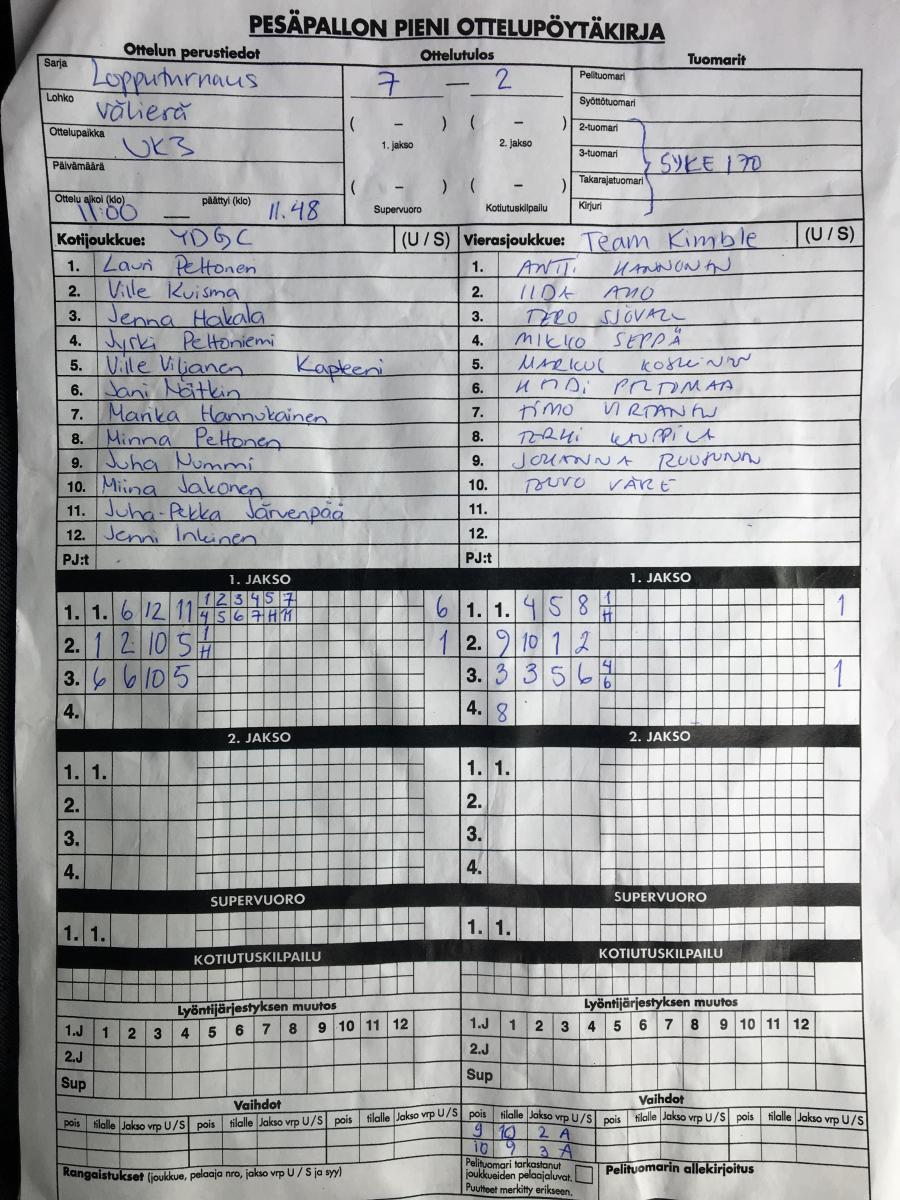 PESÄPALLON PIENI OTTELUPÖYTÄKIRJA
Ottelun perustiedot Ottelutulos Tuomarit
Sarja Lopputurnaus
Lohko Välierä
Ottelupaikka UK3
Päivämäärä
Ottelu alkoi (klo) 11:00 — päättyi (klo) 11.48
7 — 2
( – ) ( – )
1. jakso 2. jakso
( – ) ( – )
Supervuoro Kotiutuskilpailu
Pelituomari
Syöttötuomari
2-tuomari
3-tuomari SYKE 170
Takarajatuomari
Kirjuri
Kotijoukkue: YDGC (U / S) Vierasjoukkue: Team Kimble (U / S)
1. Lauri Peltonen 1. ANTTI HANNONEN
2. Ville Kuisma 2. IIDA AHO
3. Jenna Hakala 3. TERO SJÖVALL
4. Jyrki Peltoniemi 4. MIKKO SEPPÄ
5. Ville Viljanen Kapteeni 5. MARKUS KOSKINEN
6. Jani Nätkin 6. HEIDI PELTOMAA
7. Marika Hannukainen 7. TIMO VIRTANEN
8. Minna Peltonen 8. TERHI KAUPPILA
9. Juha Nummi 9. JOHANNA RUUSUNEN
10. Miina Jakonen 10. TAUVO VARE
11. Juha-Pekka Järvenpää 11.
12. Jenni Inkinen 12.
PJ:t PJ:t
1. JAKSO 1. JAKSO
1. 1. 6 12 11 1 2 3 4 5 7 6 1. 1. 4 5 8 1 1
4 5 6 7 H H H
2. 1 2 10 5 1 1 2. 9 10 1 2
H
3. 6 6 10 5 3. 3 3 5 6 4 1
6
4. 4. 8
2. JAKSO 2. JAKSO
1. 1. 1. 1.
2. 2.
3. 3.
4. 4.
SUPERVUORO SUPERVUORO
1. 1. 1. 1.
KOTIUTUSKILPAILU KOTIUTUSKILPAILU
Lyöntijärjestyksen muutos Lyöntijärjestyksen muutos
1.J 1 2 3 4 5 6 7 8 9 10 11 12 1.J 1 2 3 4 5 6 7 8 9 10 11 12
2.J 2.J
Sup Sup
Vaihdot Vaihdot
pois tilalle Jakso vrp U / S pois tilalle Jakso vrp U / S pois tilalle Jakso vrp U / S pois tilalle Jakso vrp U / S pois tilalle Jakso vrp U / S pois tilalle Jakso vrp U / S
9 10 2 A
10 9 3 A
Rangaistukset (joukkue, pelaaja nro, jakso vrp U / S ja syy) Pelituomari tarkastanut joukkueiden pelaajaluvat. Puutteet merkitty erikseen. Pelituomarin allekirjoitus